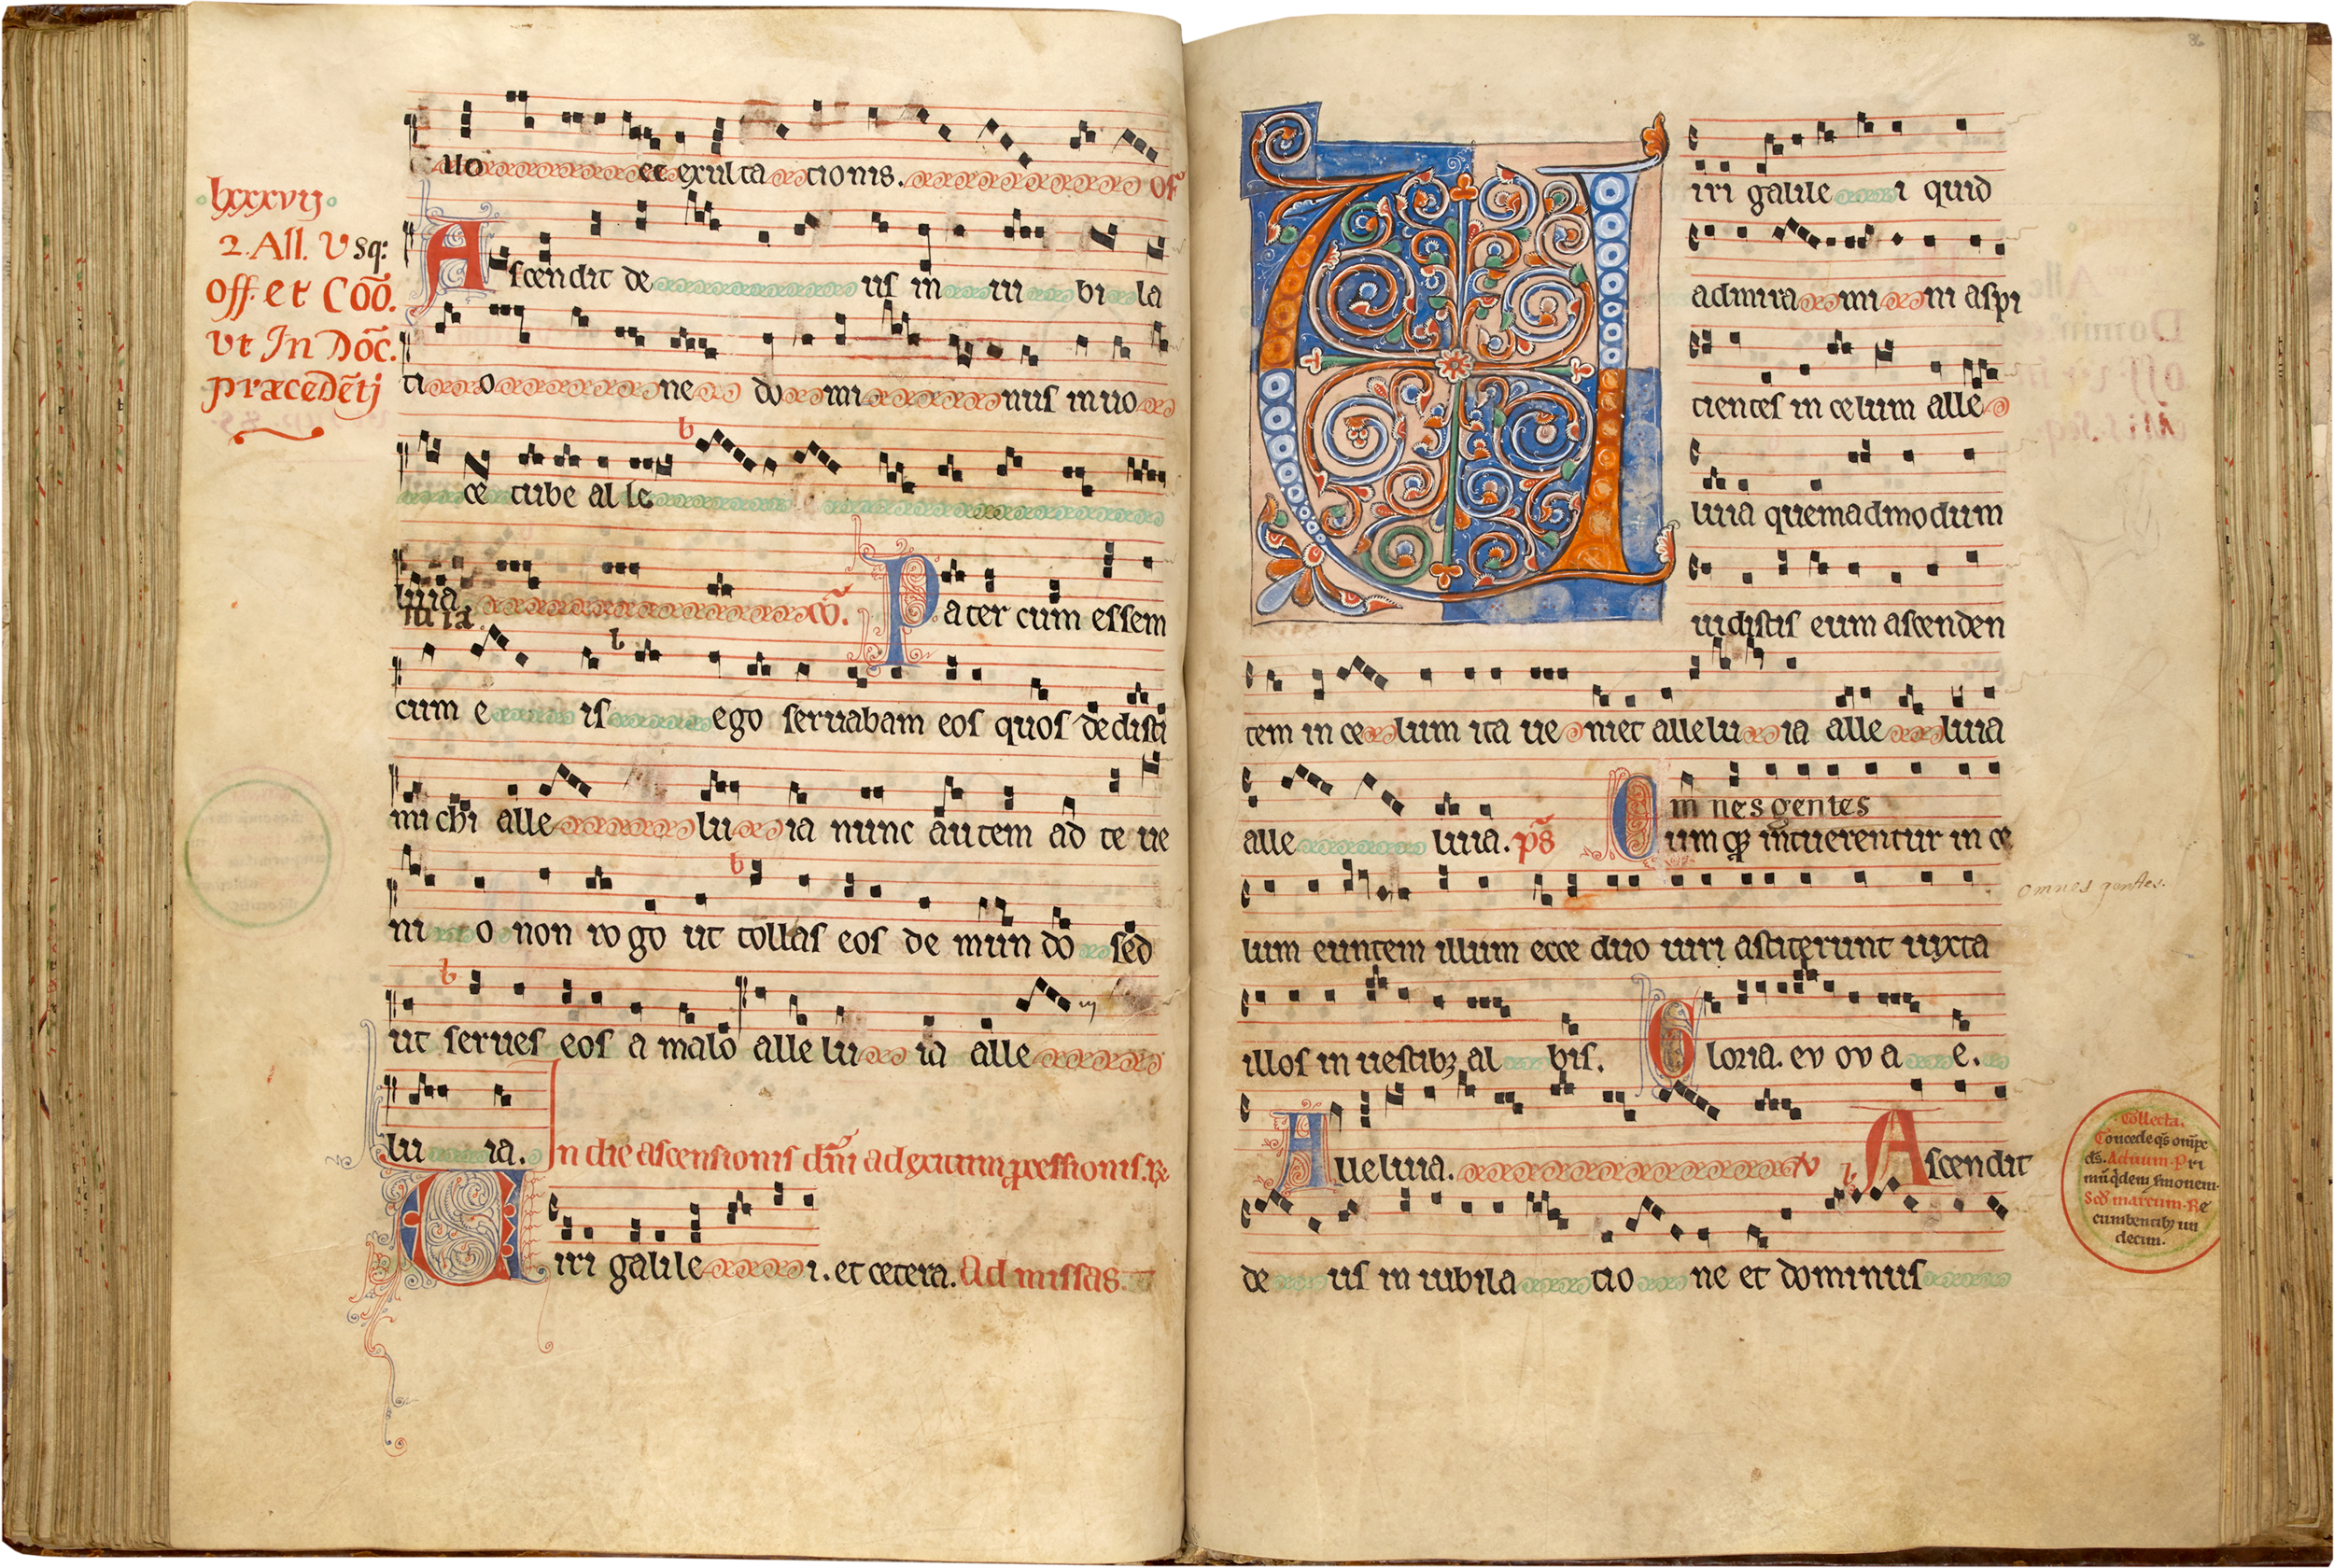 uo et exultationis. Of
lxxxvij
2. All. V sq:
Off. et Cōō.
vt In Dōc.
præcedētj
Ascendit deus in iubila
tione dominus in uo
ce tube alle
luia. cō. Pater cum essem
cum eis ego seruabam eos quos dedisti
michi alleluia nunc autem ad te ue
nio non rogo ut tollas eos de mundo sed
ut serues eos a malo alleluia alle
luia. In die ascensionis dn̄i ad exitum ꝓcessionis. ℞
Viri galilei. et cetera. Ad missas
86
Viri galilei quid
admiramini aspi
cientes in celum alle
luia quemadmodum
uidistis eum ascenden
tem in celum ita ueniet alleluia alleluia
omnes gentes
alleluia. ps̄ Cumqꝫ intuerentur in ce
omnes gentes.
lum euntem illum ecce duo uiri astiterunt iuxta
illos in uestibꝫ albis. Gloria. ev ov a e.
Alleluia. V Ascendit
deus in iubilatione et dominus
Collecta.
Concede qs̄ om̄ps
ds̄. Ad uum. Pri
mū q̄dem sermonem.
Scd̄ marcum. Re
cumbentibꝫ un
decim.